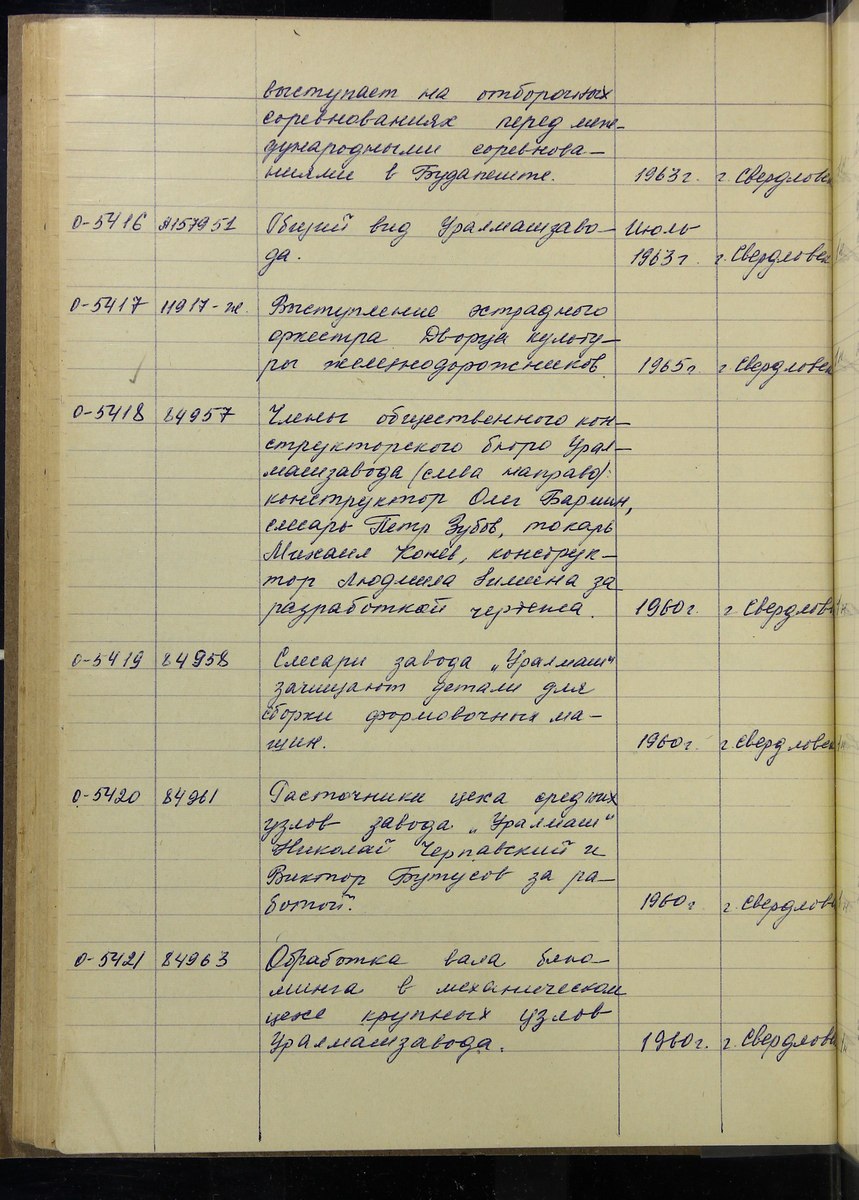 выступает на отборочных
соревнованиях перед меж-
дународными соревнова-
ниями в Будапеште. 1963г. г. Свердловск
0-5416 А157951 Общий вид Уралмашзаво- Июль
да. 1963г г. Свердловск
0-5417 11917-ж. Выступление эстрадного
оркестра Дворца культу-
ры железнодорожников. 1965г. г. Свердловск
0-5418 84957 Члены общественного кон-
структорского бюро Урал-
машзавода (слева направо):
конструктор Олег Баршин,
слесарь Петр Зубов, токарь
Михаил Конев, конструк-
тор Людмила Зимина за
разработкой чертежа. 1960г. г. Свердловс
0-5419 84958 Слесари завода „Уралмаш“
зачищают детали для
сборки формовочных ма-
шин. 1960г. г. Свердловск
0-5420 84961 Расточники цеха средних
узлов завода „Уралмаш“
Николай Чернавский и
Виктор Бутусов за ра-
ботой. 1960г г. Свердловс
0-5421 84963 Обработка вала блю-
минга в механическом
цехе крупных узлов
Уралмашзавода. 1960г. г. Свердловс